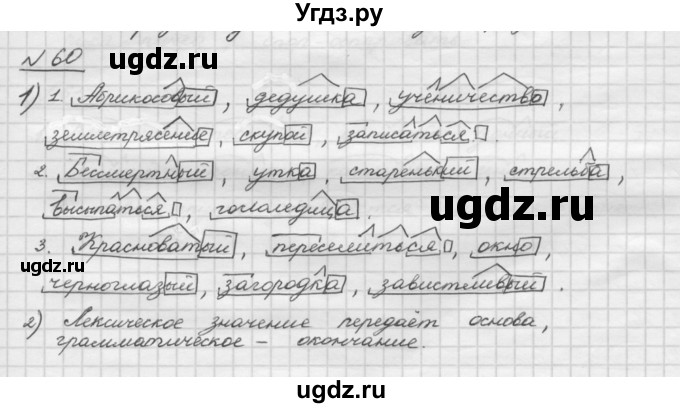 Угдз.ру
№ 60
1) 1. Абрикосовый, дедушка, ученичество,
землетрясение, скупой, записаться.
2. Бессмертный, утка, старенький, стрельба,
высыпаться, гололедица.
ugdz.ru
ugdz.ru
3. Красноватый, переселиться, окно,
ugdz.ru
черноглазый, загородка, завистливый.
2) Лексическое значение передаёт основа,
грамматическое – окончание.
ugdz.ru